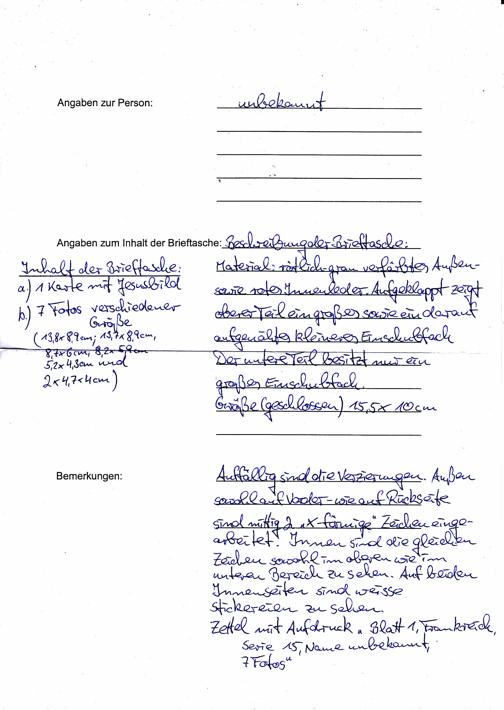 Angaben zur Person: unbekannt
Angaben zum Inhalt der Brieftasche: Beschreibung der Brieftasche:
Inhalt der Brieftasche:
a) 1 Karte mit Jesusbild
b) 7 Fotos verschiedener
Größe
(13,8x8,9cm; 13,7x8,9cm,
8,7x6cm, 8,2x5,9cm
5,2x4,3cm und
2x4,7x4cm)
Material: rötlich-grau verfärbtes Außen-
sowie rotes Innenleder. Aufgeklappt zeigt
oberer Teil ein großes sowie ein darauf
aufgenähtes kleineres Einschubfach
Der untere Teil besitzt nur ein
großes Einschubfach.
Größe (geschlossen) 15,5x10cm
Bemerkungen:
Auffällig sind die Verzierungen. Außen
sowohl auf Vorder- wie auf Rückseite
sind mittig 2 „X-förmige" Zeichen einge-
arbeitet. Innen sind die gleichen
Zeichen sowohl im oberen wie im
unteren Bereich zu sehen. Auf beiden
Innenseiten sind weisse
Stickereien zu sehen.
Zettel mit Aufdruck „Blatt 1, Frankreich,
Serie 15, Name unbekannt,
7 Fotos"